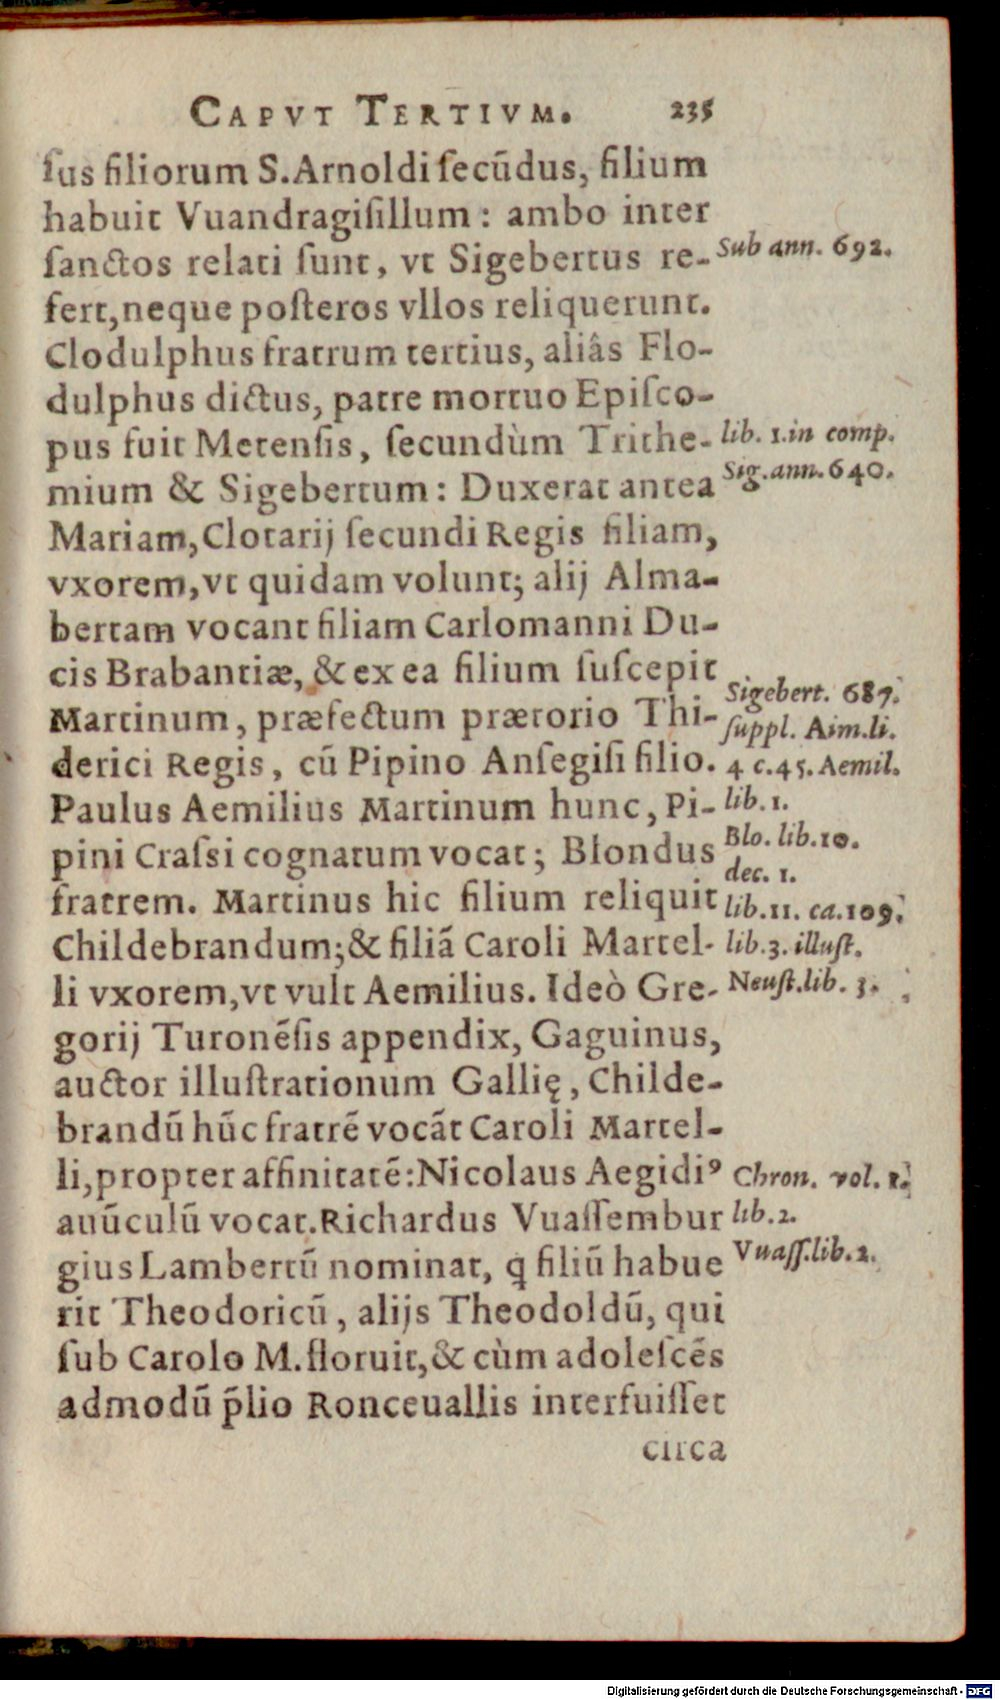 CAPVT TERTIVM. 235
ſus filiorum S. Arnoldi ſecūdus, filium
habuit Vuandragiſillum : ambo inter
ſanctos relati ſunt, vt Sigebertus re-
fert, neque poſteros vllos reliquerunt.
Clodulphus fratrum tertius, aliâs Flo-
dulphus dictus, patre mortuo Epiſco-
pus fuit Metenſis, ſecundùm Trithe-
mium & Sigebertum : Duxerat antea
Mariam, Clotarij ſecundi Regis filiam,
vxorem, vt quidam volunt; alij Alma-
bertam vocant filiam Carlomanni Du-
cis Brabantiæ, & ex ea filium ſuſcepit
Martinum, præfectum prætorio Thi-
derici Regis, cū Pipino Anſegiſi filio.
Paulus Aemilius Martinum hunc, Pi-
pini Craſsi cognatum vocat; Blondus
fratrem. Martinus hic filium reliquit
Childebrandum; & filiā Caroli Martel-
li vxorem, vt vult Aemilius. Ideò Gre-
gorij Turonēſis appendix, Gaguinus,
auctor illuſtrationum Gallię, Childe-
brandū hūc fratrē vocāt Caroli Martel-
li, propter affinitatē: Nicolaus Aegidiꝰ
auūculū vocat. Richardus Vuaſſembur
gius Lambertū nominat, q filiū habue
rit Theodoricū, alijs Theodoldū, qui
ſub Carolo M. floruit, & cùm adoleſcēs
admodū p̄lio Ronceuallis interfuiſſet
circa
Sub ann. 692.
lib. 1. in comp.
Sig. ann. 640.
Sigebert. 687.
ſuppl. Aim. li.
4 c. 45. Aemil.
lib. 1.
Blo. lib. 10.
dec. 1.
lib. 11. ca. 109.
lib. 3. illuſt.
Neuſt. lib. 3.
Chron. vol. 1.
lib. 2.
Vuaſſ. lib. 2.
Digitalisierung gefördert durch die Deutsche Forschungsgemeinschaft - DFG